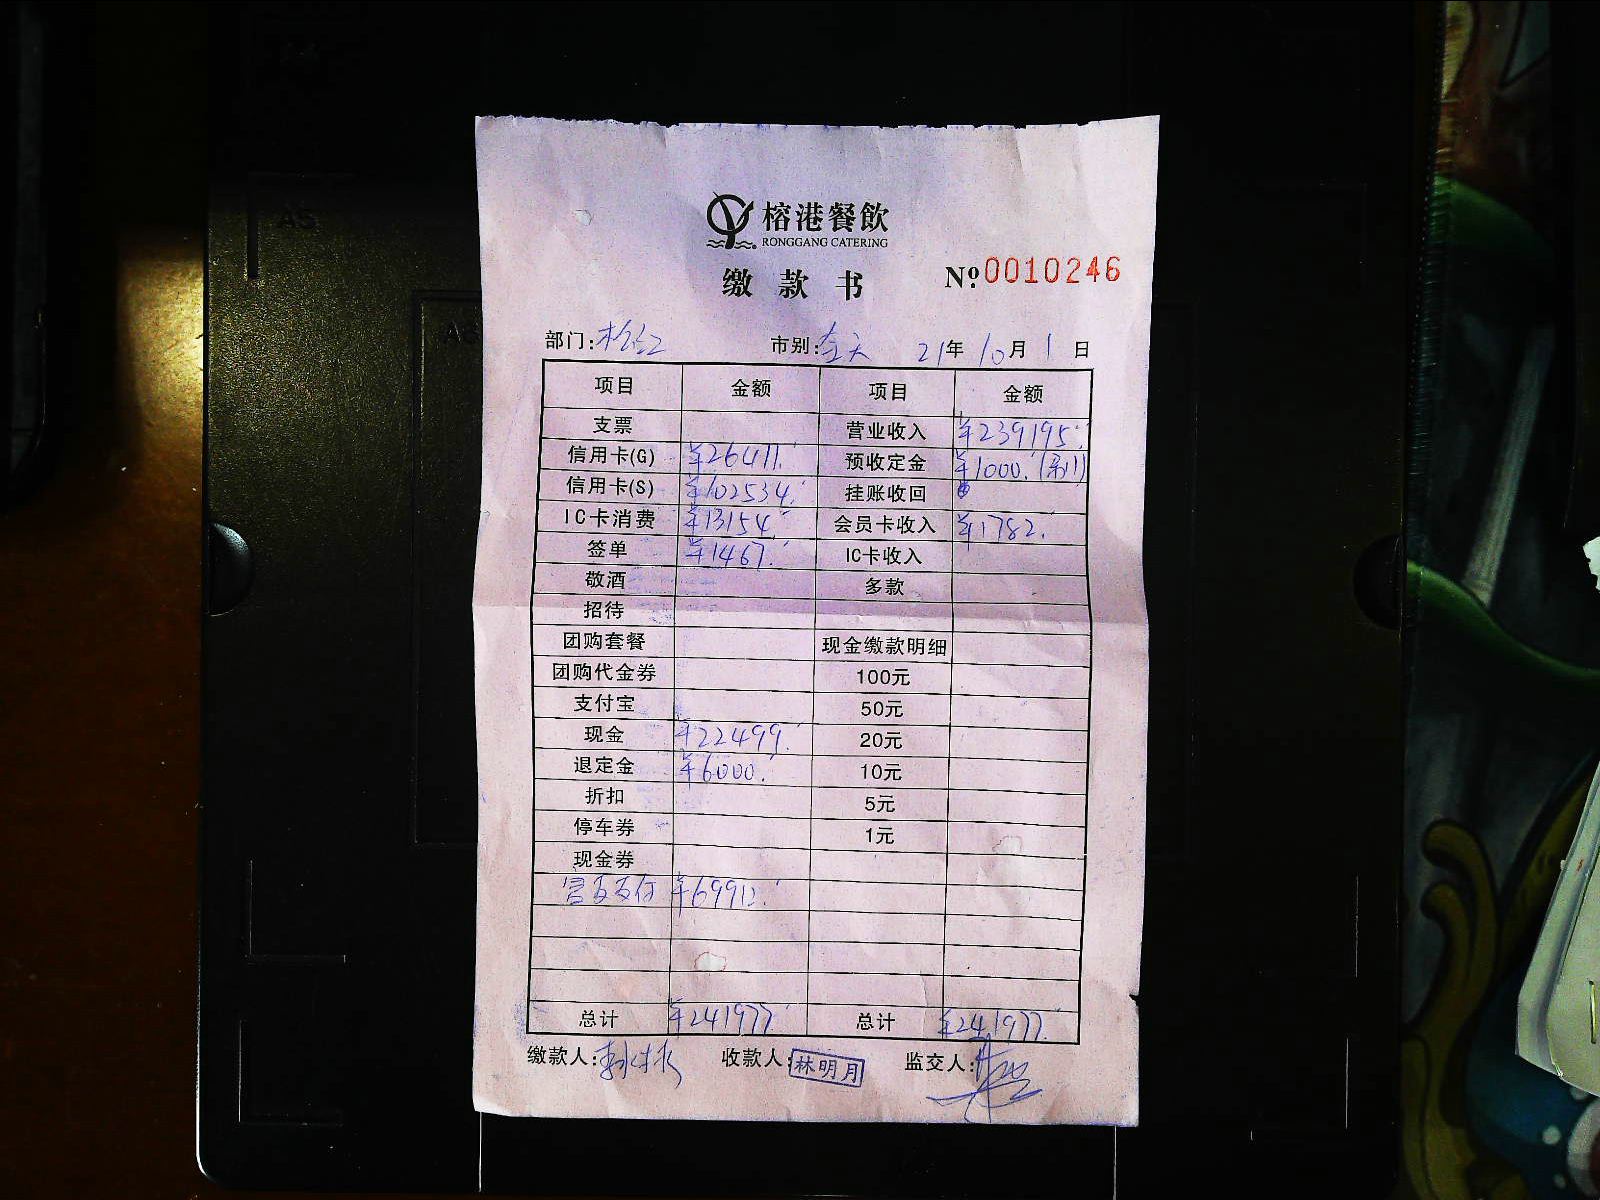 榕港餐飲
RONGGANG CATERING
缴款书 Nº 0010246
部门: 市别:全天 21年10月1日
项目 金额 项目 金额
支票 营业收入 ¥239195.
信用卡(G) ¥26411. 预收定金 ¥1000.
信用卡(S) ¥102534. 挂账收回
IC卡消费 ¥13154. 会员卡收入 ¥1782.
签单 ¥1467. IC卡收入
敬酒 多款
招待
团购套餐 现金缴款明细
团购代金券 100元
支付宝 50元
现金 ¥22499. 20元
退定金 ¥6000. 10元
折扣 5元
停车券 1元
现金券
富友支付 ¥69912.
总计 ¥241977. 总计 ¥241977.
缴款人: 收款人:林明月 监交人: